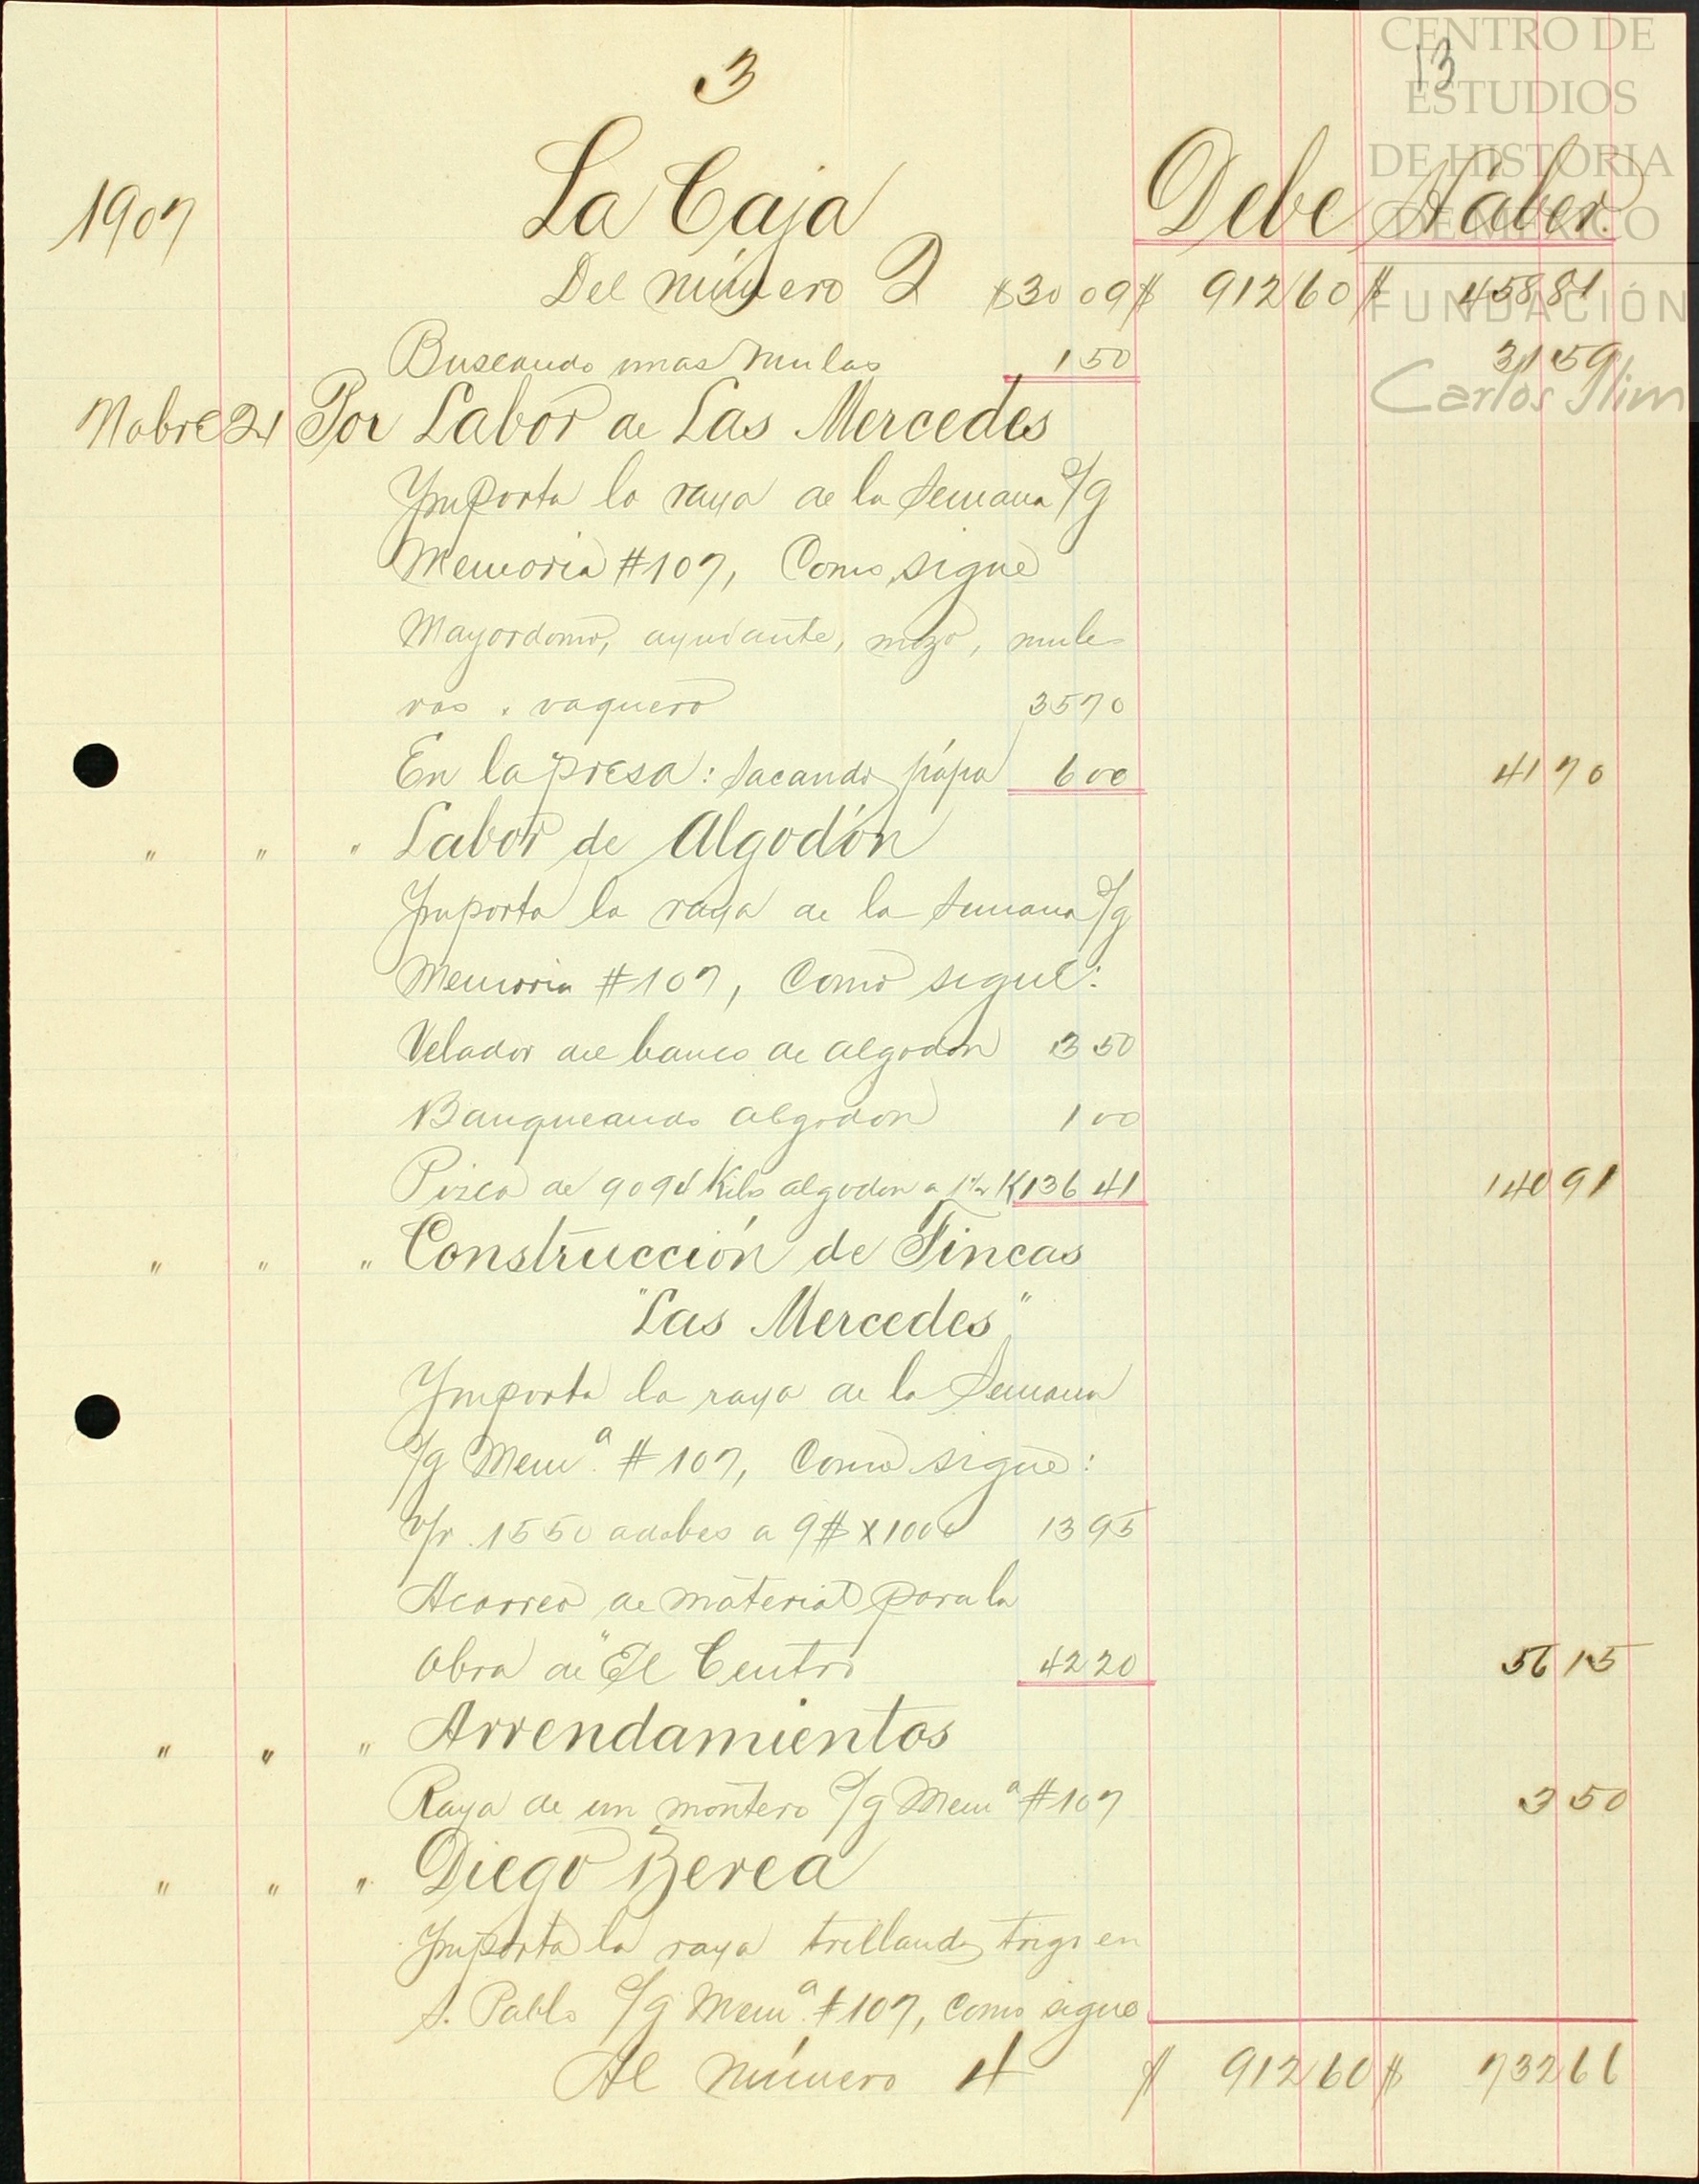 3
13
CENTRO DE
ESTUDIOS
DE HISTORIA
DE MÉXICO
FUNDACIÓN
Carlos Slim
1907 La Caja Debe Haber
Del número 2 $30 09 $ 912 60 $ 458 81
Buscando unas mulas 1 50 31 59
Nobre 21 Por Labor de Las Mercedes
Ymporta la raya de la Semana s/g
Memoria #107, Como sigue
Mayordomo, ayudante, mozo, mule
ros y vaquero 35 70
En la presa: sacando 6 00 41 70
" " " Labor de Algodón
Ymporta la raya de la Semana s/g
Memoria #107, Como sigue:
Velador del banco de algodon 3 50
Banqueando algodon 1 00
Pizca de 9094 Kilos algodon a 1½ K 136 41 140 91
" " " Construcción de Fincas
"Las Mercedes"
Ymporta la raya de la Semana
s/g Memª. #107, Como sigue:
v/r. 1550 adobes a 9$ X 1000 13 95
Acarreo de material para la
obra de "El Centro 42 20 56 15
" " " Arrendamientos
Raya de un montero s/g Memª #107 3 50
" " " Diego Berea
Ymporta la raya trillando trigo en
S. Pablo s/g Memª. #107, como sigue
Al número 4 $ 912 60 $ 732 66